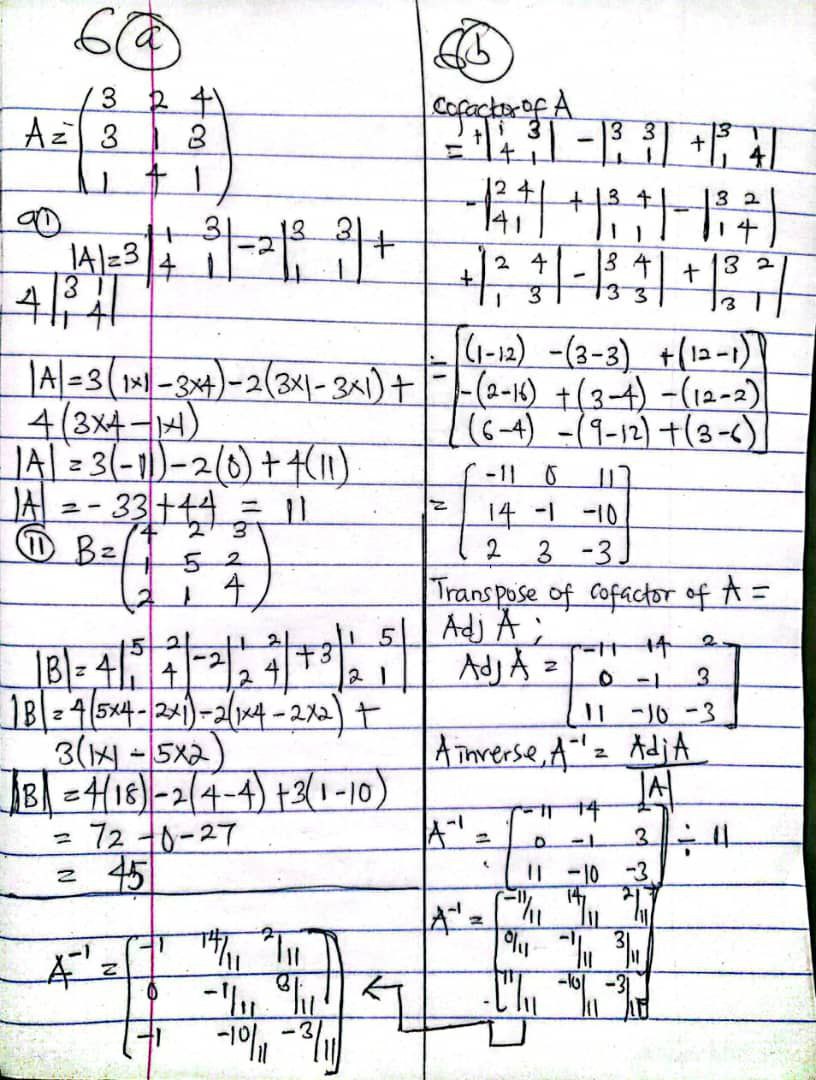 6 (a)
A = (3 2 4
3 1 3
1 4 1)
a (i)
|A| = 3 |1 3
4 1| - 2 |3 3
1 1| +
4 |3 1
1 4|
|A| = 3(1×1 - 3×4) - 2(3×1 - 3×1) +
4(3×4 - 1×1)
|A| = 3(-11) - 2(0) + 4(11)
|A| = - 33 + 44 = 11
(ii) B = (4 2 3
1 5 2
2 1 4)
|B| = 4 |5 2
1 4| - 2 |1 2
2 4| + 3 |1 5
2 1|
|B| = 4(5×4 - 2×1) - 2(1×4 - 2×2) +
3(1×1 - 5×2)
|B| = 4(18) - 2(4-4) + 3(1-10)
= 72 - 0 - 27
= 45
6 (b)
Cofactor of A
= + |1 3
4 1| - |3 3
1 1| + |3 1
1 4|
- |2 4
4 1| + |3 4
1 1| - |3 2
1 4|
+ |2 4
1 3| - |3 4
3 3| + |3 2
3 1|
= [(1-12) -(3-3) +(12-1)
-(2-16) +(3-4) -(12-2)
(6-4) -(9-12) +(3-6)]
= [-11 0 11
14 -1 -10
2 3 -3]
Transpose of cofactor of A =
Adj A ;
Adj A = [-11 14 2
0 -1 3
11 -10 -3]
A inverse, A⁻¹ = Adj A
|A|
A⁻¹ = [-11 14 2
0 -1 3
11 -10 -3] ÷ 11
A⁻¹ = [-11/11 14/11 2/11
0/11 -1/11 3/11
11/11 -10/11 -3/11]
A⁻¹ = [-1 14/11 2/11
0 -1/11 3/11
-1 -10/11 -3/11]